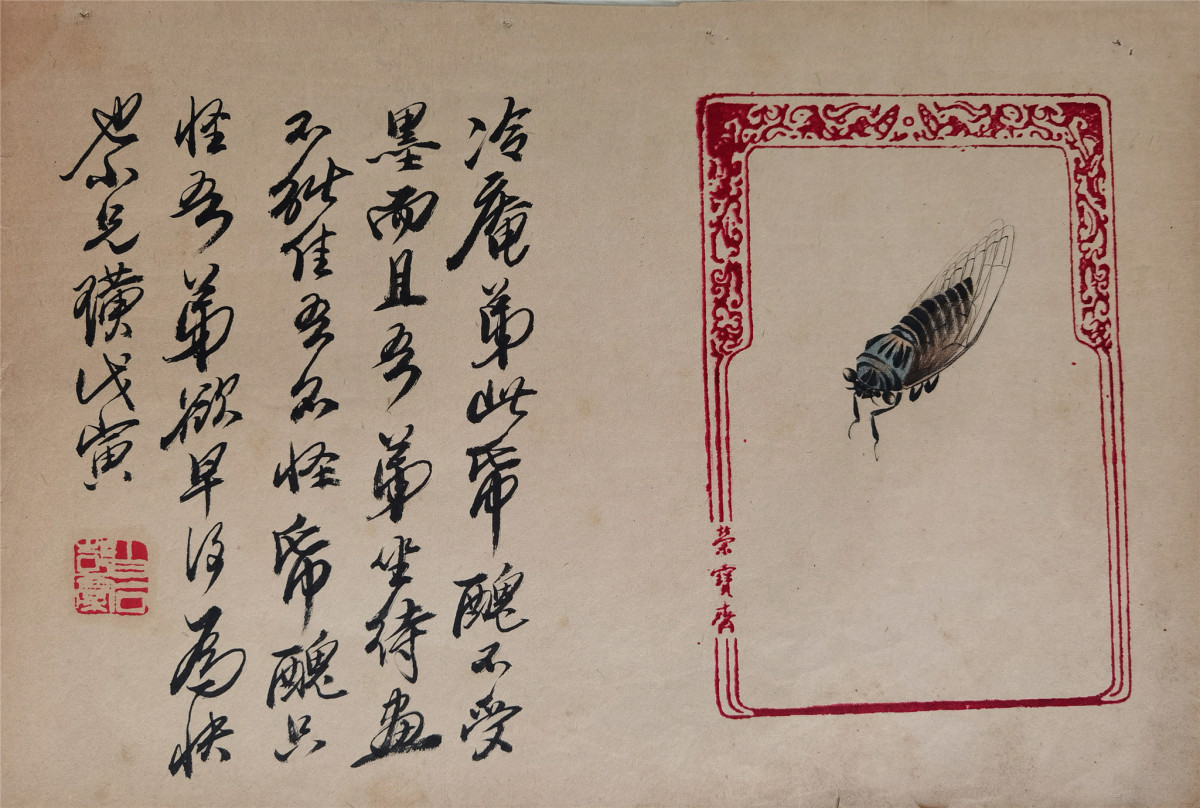 榮寶齋
冷庵弟此帋醜不受
墨而且吾弟坐待畫
不能佳吾不怪帋醜只
怪吾弟欲早得為快
也小兄璜戊寅